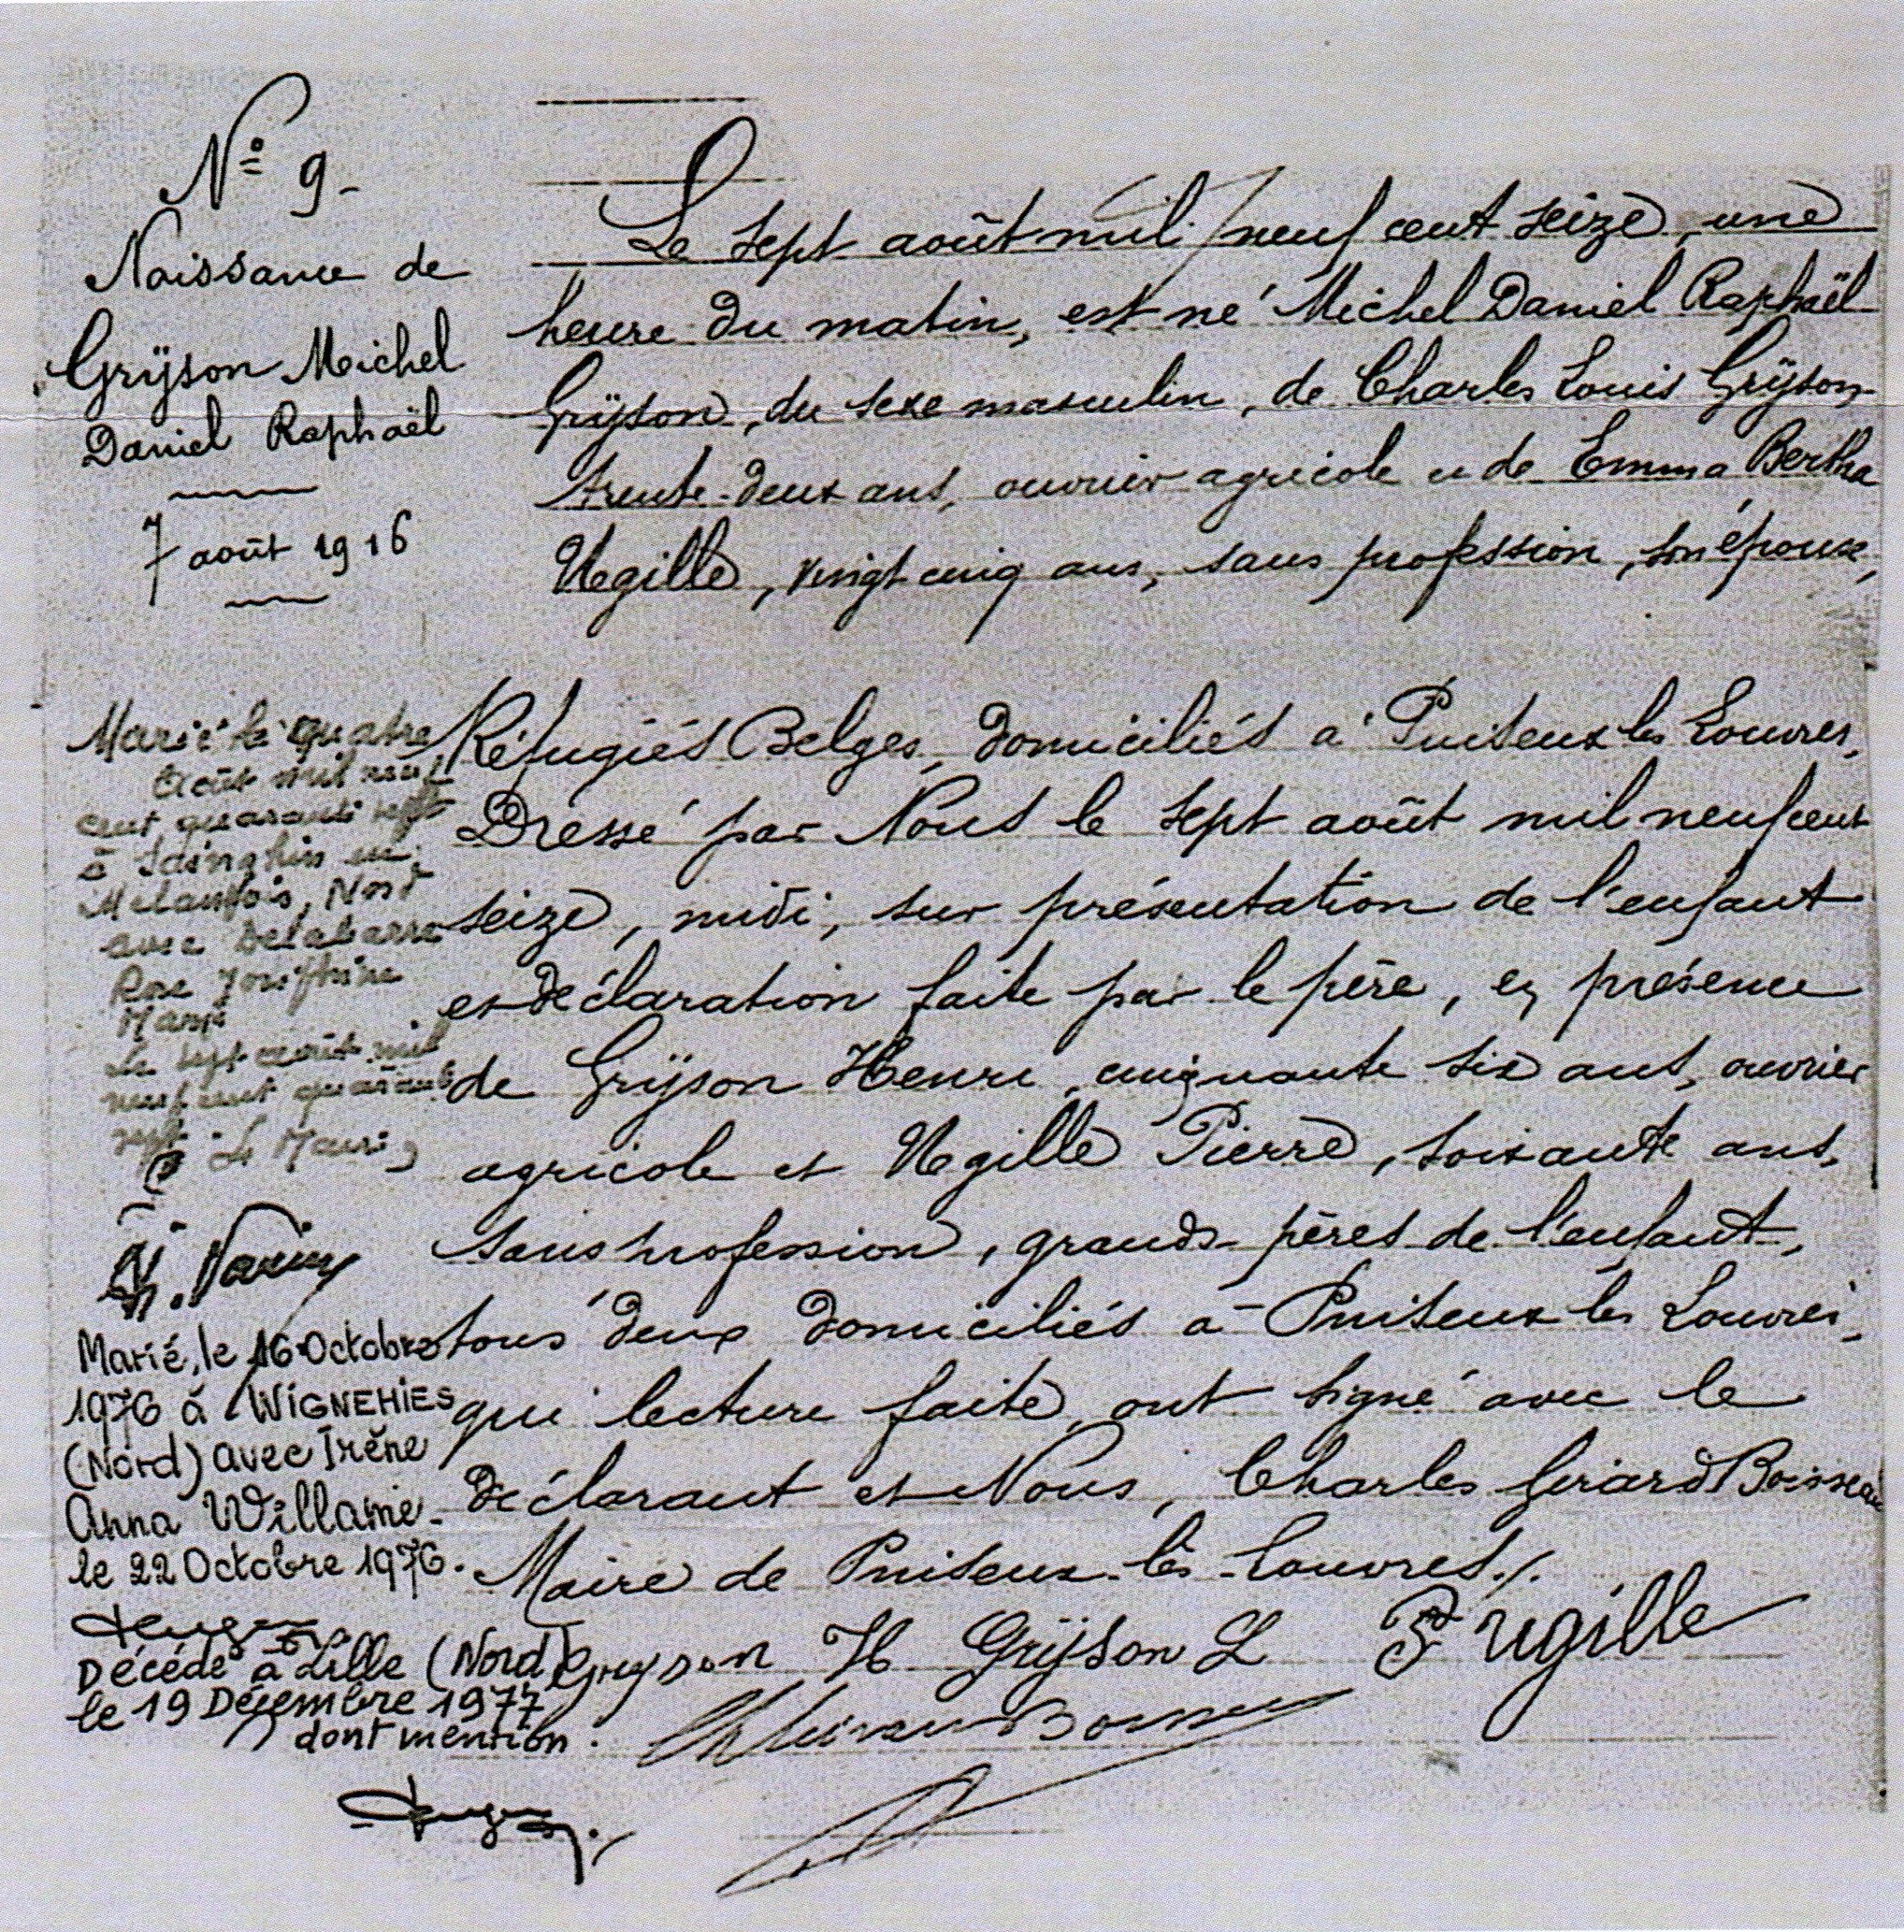 N° 9-
Naissance de
Grÿson Michel
Daniel Raphaël
7 août 1916
Le sept août mil neuf cent seize, une
heure du matin, est né Michel Daniel Raphaël
Grÿson, du sexe masculin, de Charles Louis Grÿson
trente-deux ans, ouvrier agricole et de Emma Bertha
Ugille, vingt cinq ans, sans profession, son épouse,
Réfugiés Belges, domiciliés à Puiseux les Louvres,
Dressé par Nous le sept août mil neuf cent
seize, midi, sur présentation de l'enfant
et déclaration faite par le père, en présence
de Grÿson Henri, cinquante six ans, ouvrier
agricole et Ugille Pierre, soixante ans,
sans profession, grands-pères de l'enfant,
tous deux domiciliés à Puiseux les Louvres,
qui lecture faite, ont signé avec le
déclarant et Nous, Charles Girard Boisseau
Maire de Puiseux-les-Louvres./.
Gryson H Grÿson L P Ugille
Marié le quatre
Août mil neuf
cent quarante sept
à Sainghin en
Mélantois, Nord
avec Delabarre
Rose Joséphine
Marie
Le sept août mil
neuf cent quarante
sept Le Maire
Marié, le 16 Octobre
1976 à WIGNEHIES
(Nord) avec Irène
Anna Willame-
le 22 Octobre 1976.
Décédé à Lille (Nord)
le 19 Décembre 1977
dont mention.